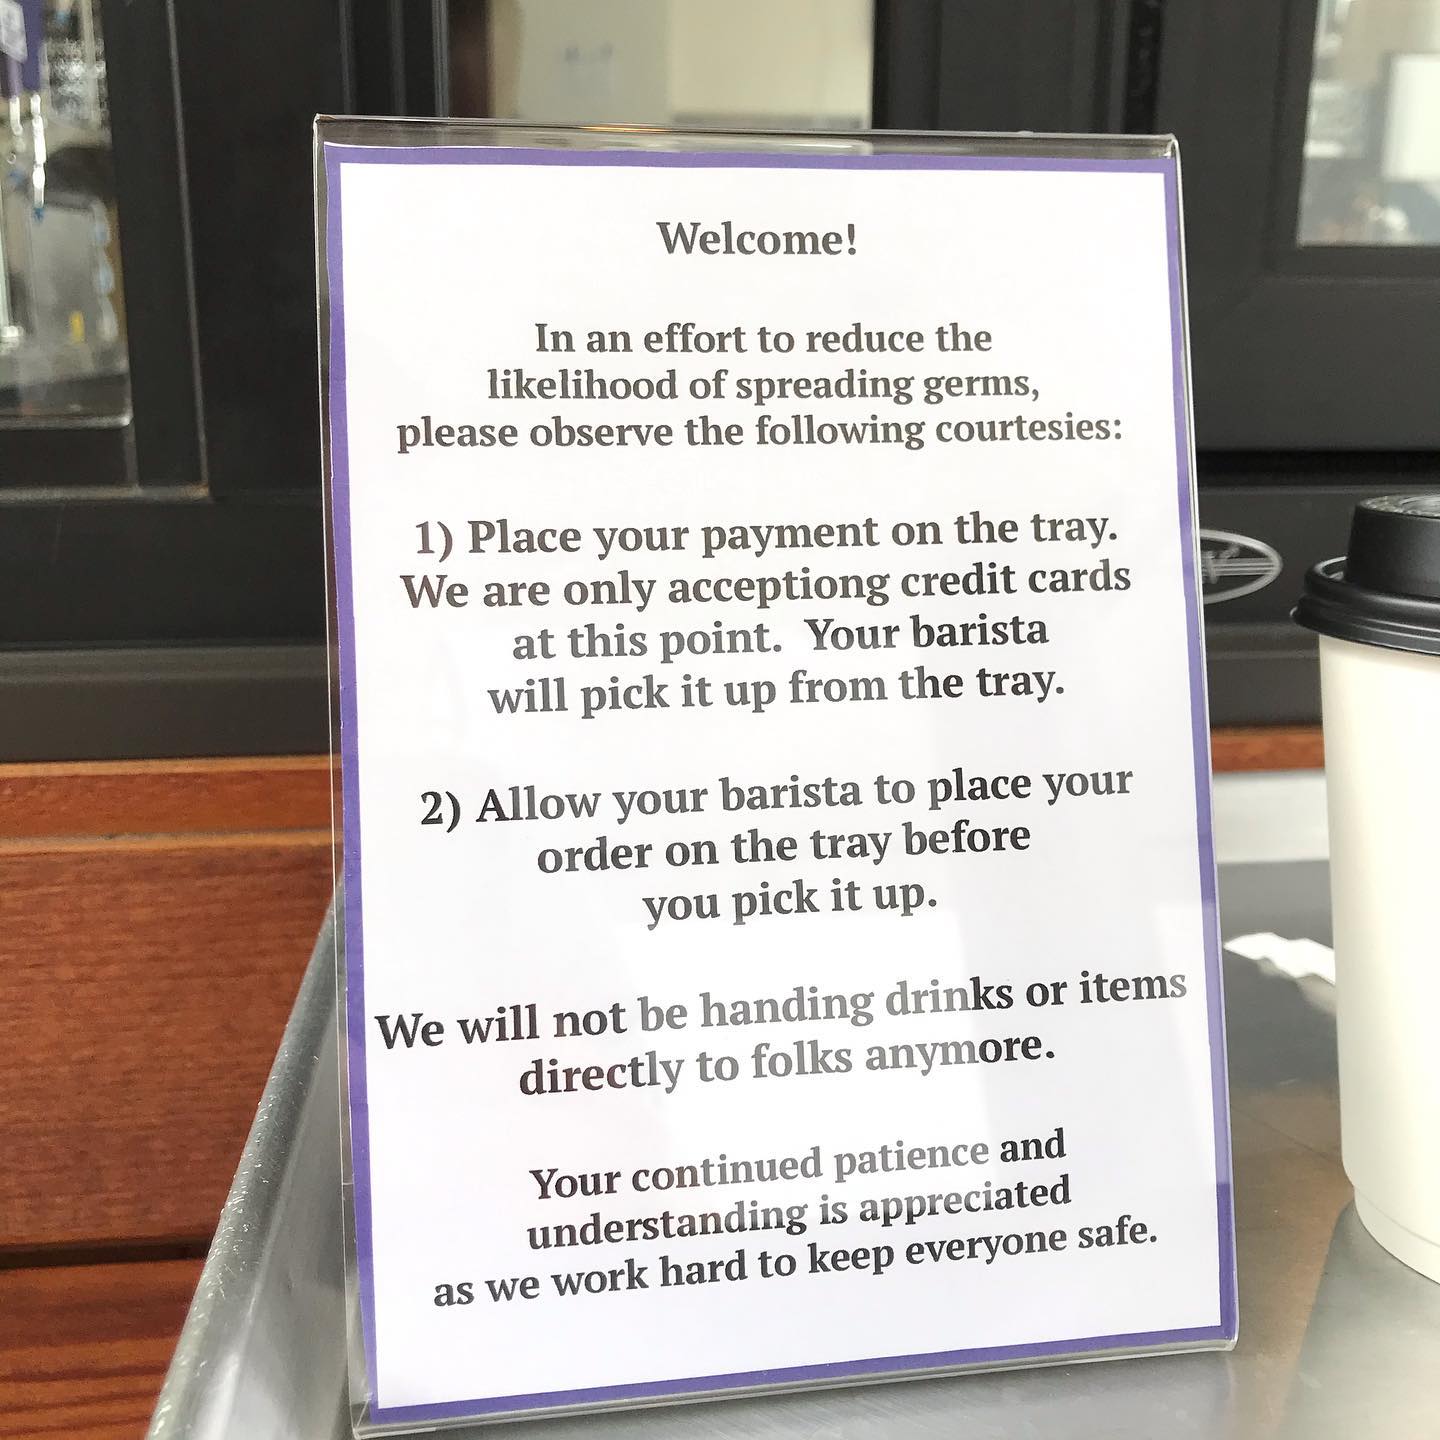 Welcome!
In an effort to reduce the
likelihood of spreading germs,
please observe the following courtesies:
1) Place your payment on the tray.
We are only acceptiong credit cards
at this point. Your barista
will pick it up from the tray.
2) Allow your barista to place your
order on the tray before
you pick it up.
We will not be handing drinks or items
directly to folks anymore.
Your continued patience and
understanding is appreciated
as we work hard to keep everyone safe.